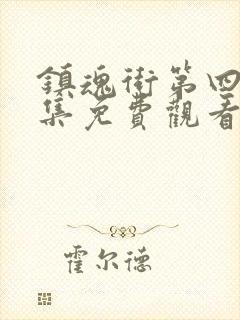 鎮魂街第四
集免費觀看
霍尔德